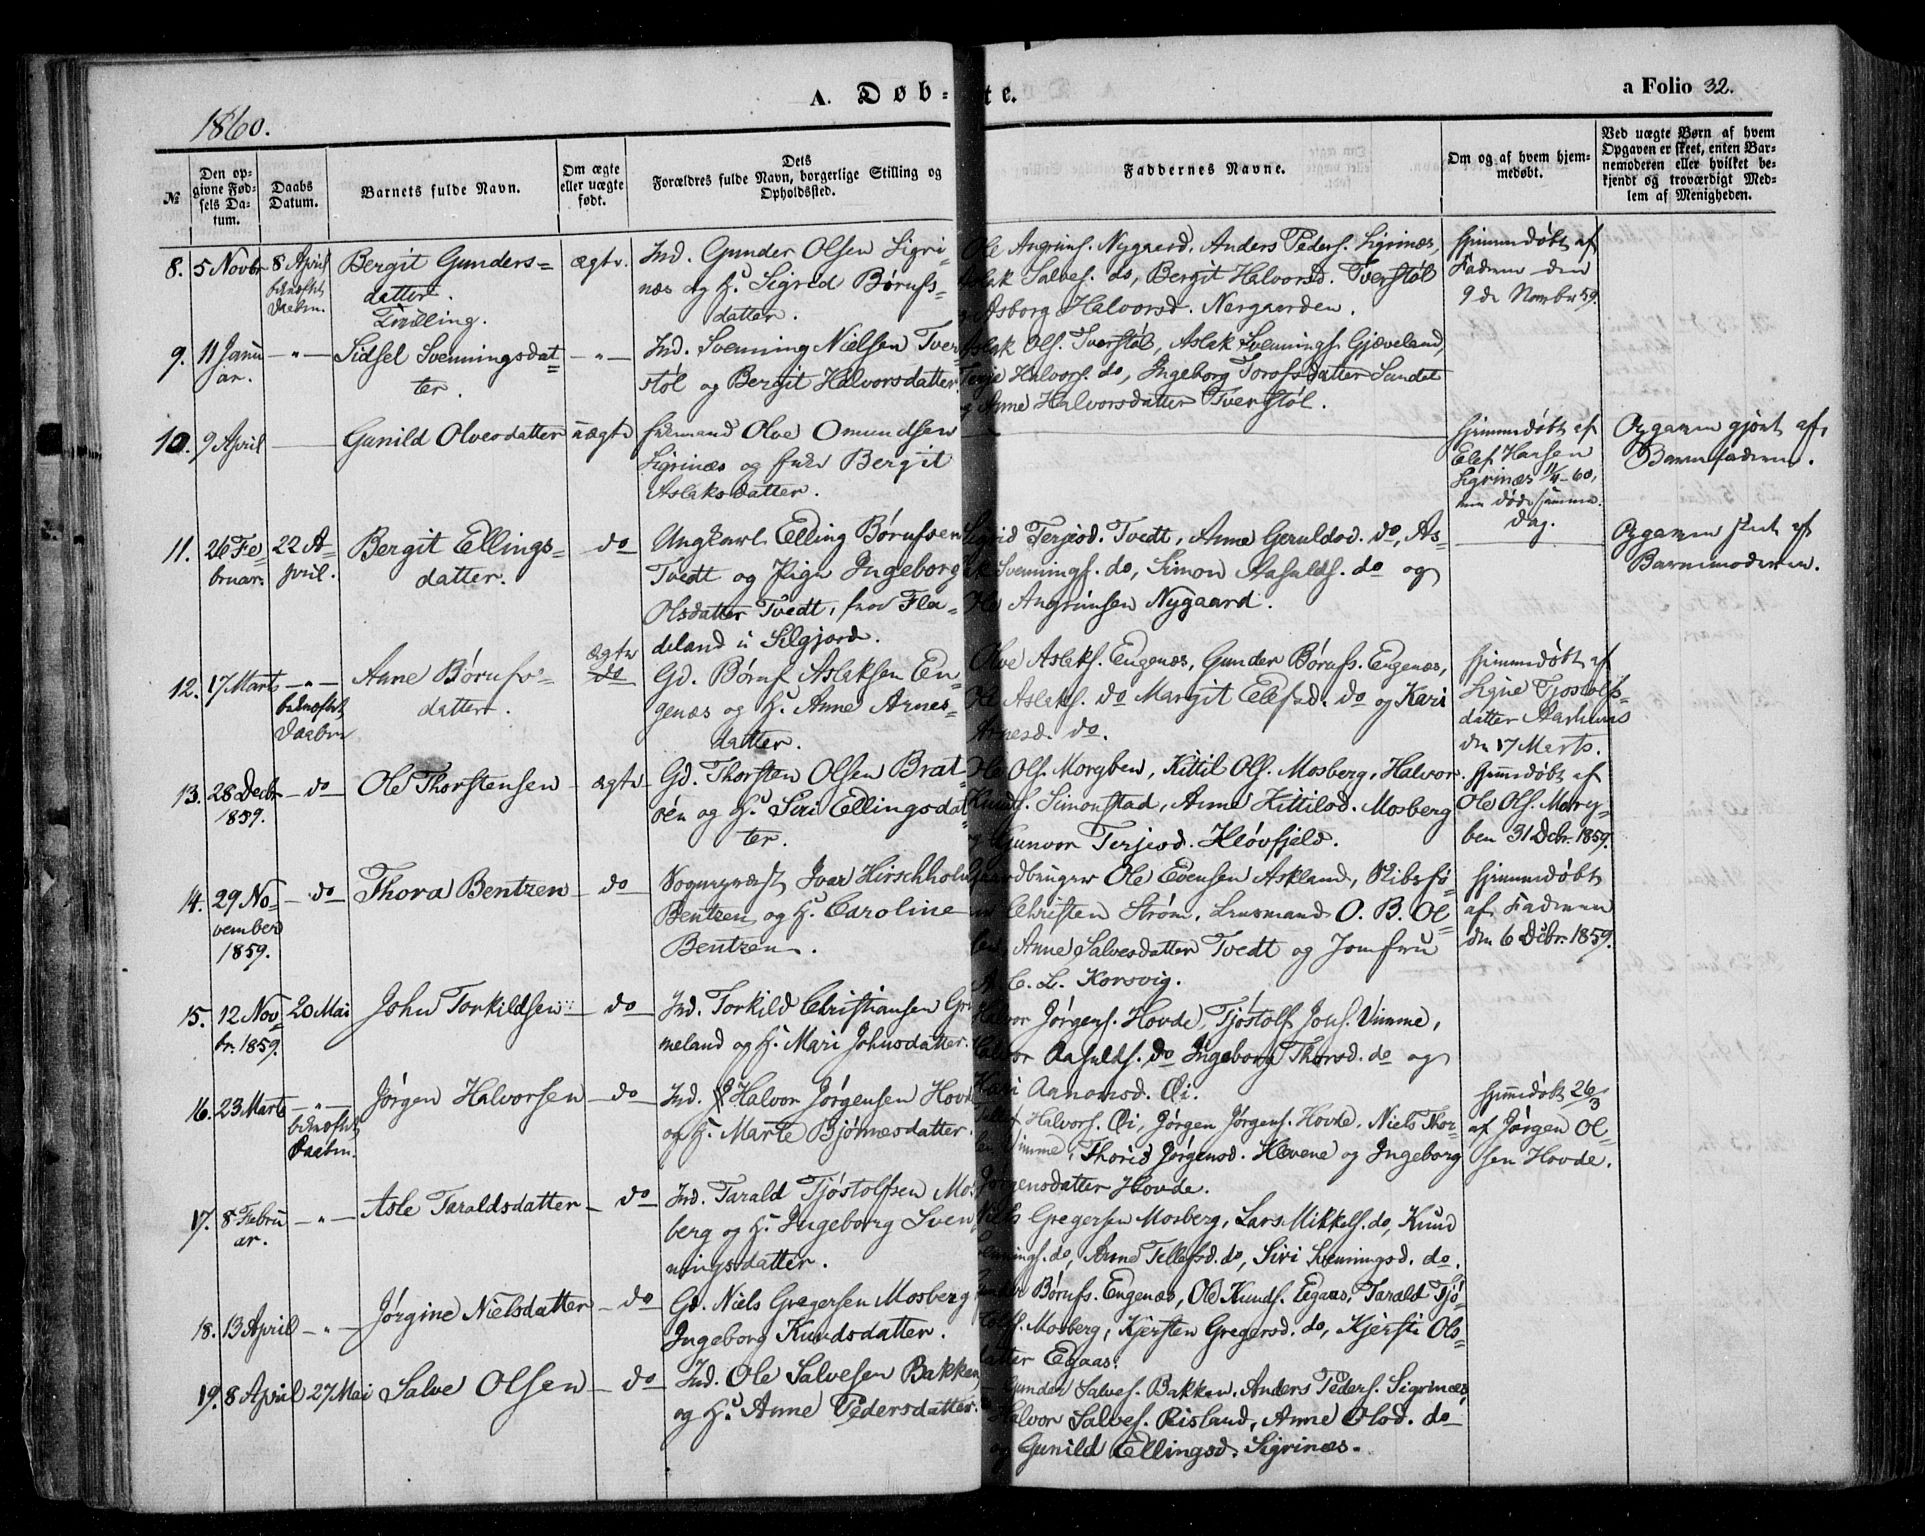 1860.
A. Døb-te.
a Folio 32.
№
Den op-
givne Fød-
sels Da-
tum.
Daabs
Datum.
Barnets fulde Navn.
Om ægte
eller uægte
født.
Dets
Forældres fulde Navn, borgerlige Stilling og
Opholdssted.
Faddernes Navne.
Om og af hvem hjem-
medøbt.
Ved uægte Børn af hvem
Opgaven er skeet, enten Bar-
nemoderen eller hvilket be-
kjendt og troværdigt Med-
lem af Menigheden.
8. 5 Novbr
8 April
bekræftet
Daaben.
Bergit Gunders-
datter.
Tvilling.
ægte.
Ind. Gunder Olsen Sigri-
næs og H. Sigrid Børufs-
datter.
Ole Angrims. Nygaard, Anders Peders. Sigrinæs,
Aslak Salves. do, Bergit Halvorsd. Tverstøl
Asborg Halvorsd. Nergaarden.
hjemmedøbt af
Faderen den
9 de Novbr 59.
9. 11 Janu
ar.
-"-
Sidsel Svenningsdat-
ter.
-"-
Ind. Svenning Nielsen Tver-
støl og Bergit Halvorsdatter
Aslak Ols. Tverstøl, Aslak Svennings. Gjæveland,
Terje Halvors. do, Ingeborg Torofsdatter Sandet
og Anne Halvorsdatter Tverstøl.
10. 9 April
Gunild Olvesdatter
uægte
Olve Omundsen
Sigrinæs og Bergit
Aslaksdatter.
hjemmedøbt af
Elef Hansen
Sigrinæs 11/4-60,
døde samme
Dag.
Opgaven gjort af
Barnefaderen.
11. 26 Fe-
bruar.
22 A-
pril.
Bergit Ellings-
datter.
do
Ungkarl Elling Børufsen
Tvedt og Pige Ingeborg
Olsdatter Tvedt, fra Fla-
deland i Silgjord.
Sigrid Terjesd. Tvedt, Anne Geruldsd. do, As-
lak Svennings. do, Simon Aasulds. do og
Ole Angrimsen Nygaard.
Opgaven skeet af
Barnemoderen.
12. 17 Marts
-"-
bekræftet
Daaben
Anne Børufs-
datter.
ægte
do
Gd. Børuf Aslaksen En-
genæs og H. Anne Arnes-
datter.
Olve Aslaks. Engenæs, Gunder Børufs. Engenæs,
Ole Aslaks. do Margit Elefsd. do og Kari
Arnesd. do.
hjemmedøbt af
Signe Tjostolfs-
datter Aarhuus
den 17 Marts.
13. 28 Decbr
1859.
do
Ole Thorstensen
ægte
Gd. Thorsten Olsen Brat-
øen og H. Siri Ellingsdat-
ter.
Ole Ols. Morgben, Kittil Ols. Mosberg, Halvor
Knuds. Simonstad, Anne Kittilsd. Mosberg
og Gunvor Terjesd. Kløvfjeld.
hjemmedøbt af
Ole Ols. Morg-
ben 31 Decbr. 1859.
14. 29 No-
vember
1859.
do
Thora Bentzen
do
Sognepræst Ivar Hirschholm
Bentzen og H. Caroline
Bentzen.
Gaardbruger Ole Evensen Askland, Skibsfø-
rer Christen Strøm, Lensmand O. B. Ol-
sen, Anne Salvesdatter Tvedt og Jomfru
A. C. L. Korsvig.
hjemmedøbt
af Faderen
den 6 Decbr. 1859.
15. 12 Nov-
br. 1859.
20 Mai
John Torkildsen
do
Ind. Torkild Christiansen Gri-
meland og H. Mari Johnsdatter.
Halvor Jørgens. Hovde, Tjøstolf Jons. Vimme,
Halvor Aasulds. do Ingeborg Thorsd. do og
Kari Aanonsd. Øi.
16. 23 Marts
-"-
bekræftet
Daaben.
Jørgen Halvorsen
do
Ind. Halvor Jørgensen Hovde
og H. Marte Bjørnesdatter.
Tellef Halvors. Øi, Jørgen Jørgens. Hovde, Niels Thor-
sen Vimme, Thorid Jørgensd. Hovene og Ingeborg
Jørgensdatter Hovde.
hjemmedøbt 26/3
af Jørgen Ol-
sen Hovde.
17. 8 Febru
ar.
-"-
Asle Taraldsdatter
do
Ind. Tarald Tjøstolfsen Mos-
berg og H. Ingeborg Sven-
ningsdatter.
Niels Gregersen Mosberg, Lars Mikkels. do, Knud
Svennings. do, Anne Tellefsd. do, Siri Svenningsd. do.
18. 13 April
-"-
Jørgine Nielsdatter
do
Gd. Niels Gregersen Mosberg
Ingeborg Knudsdatter.
Gunder Børufs. Engenæs, Ole Knuds. Egaas, Tarald Tjø-
stolfs. Mosberg, Kjersten Gregersd. do, Kjersti Ols-
datter Egaas.
19. 8 April
27 Mai
Salve Olsen
do
Ind. Ole Salvesen Bakken
og H. Anne Pedersdatter.
Gunder Salves. Bakken, Anders Peders. Sigrinæs,
Halvor Salves. Risland, Anne Olsd. do
og Gunild Ellingsd. Sigrinæs.